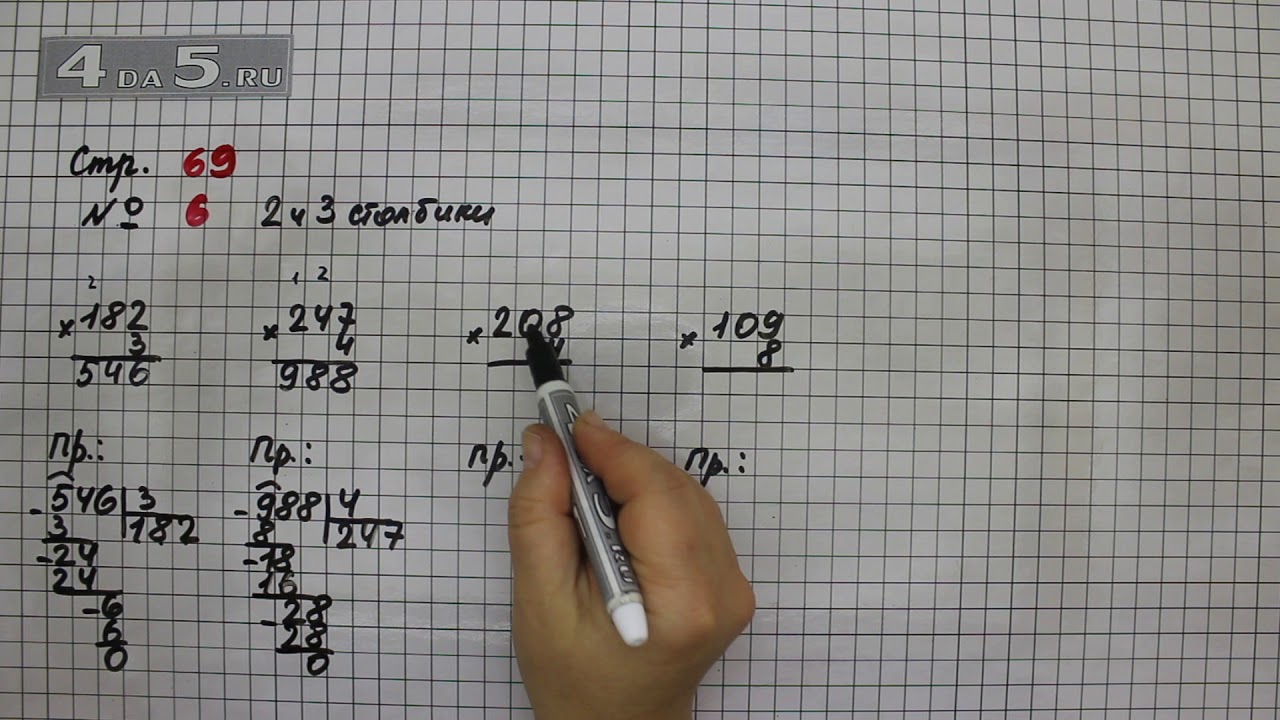 4 DA 5.RU
Стр. 69
№ 6 2 и 3 столбики
2
×182
3
546
1 2
×247
4
988
×208
4
×109
8
Пр.:
-546 3
3 182
-24
24
-6
6
0
Пр.:
-988 4
8 247
-18
16
-28
28
0
Пр.:
Пр.: